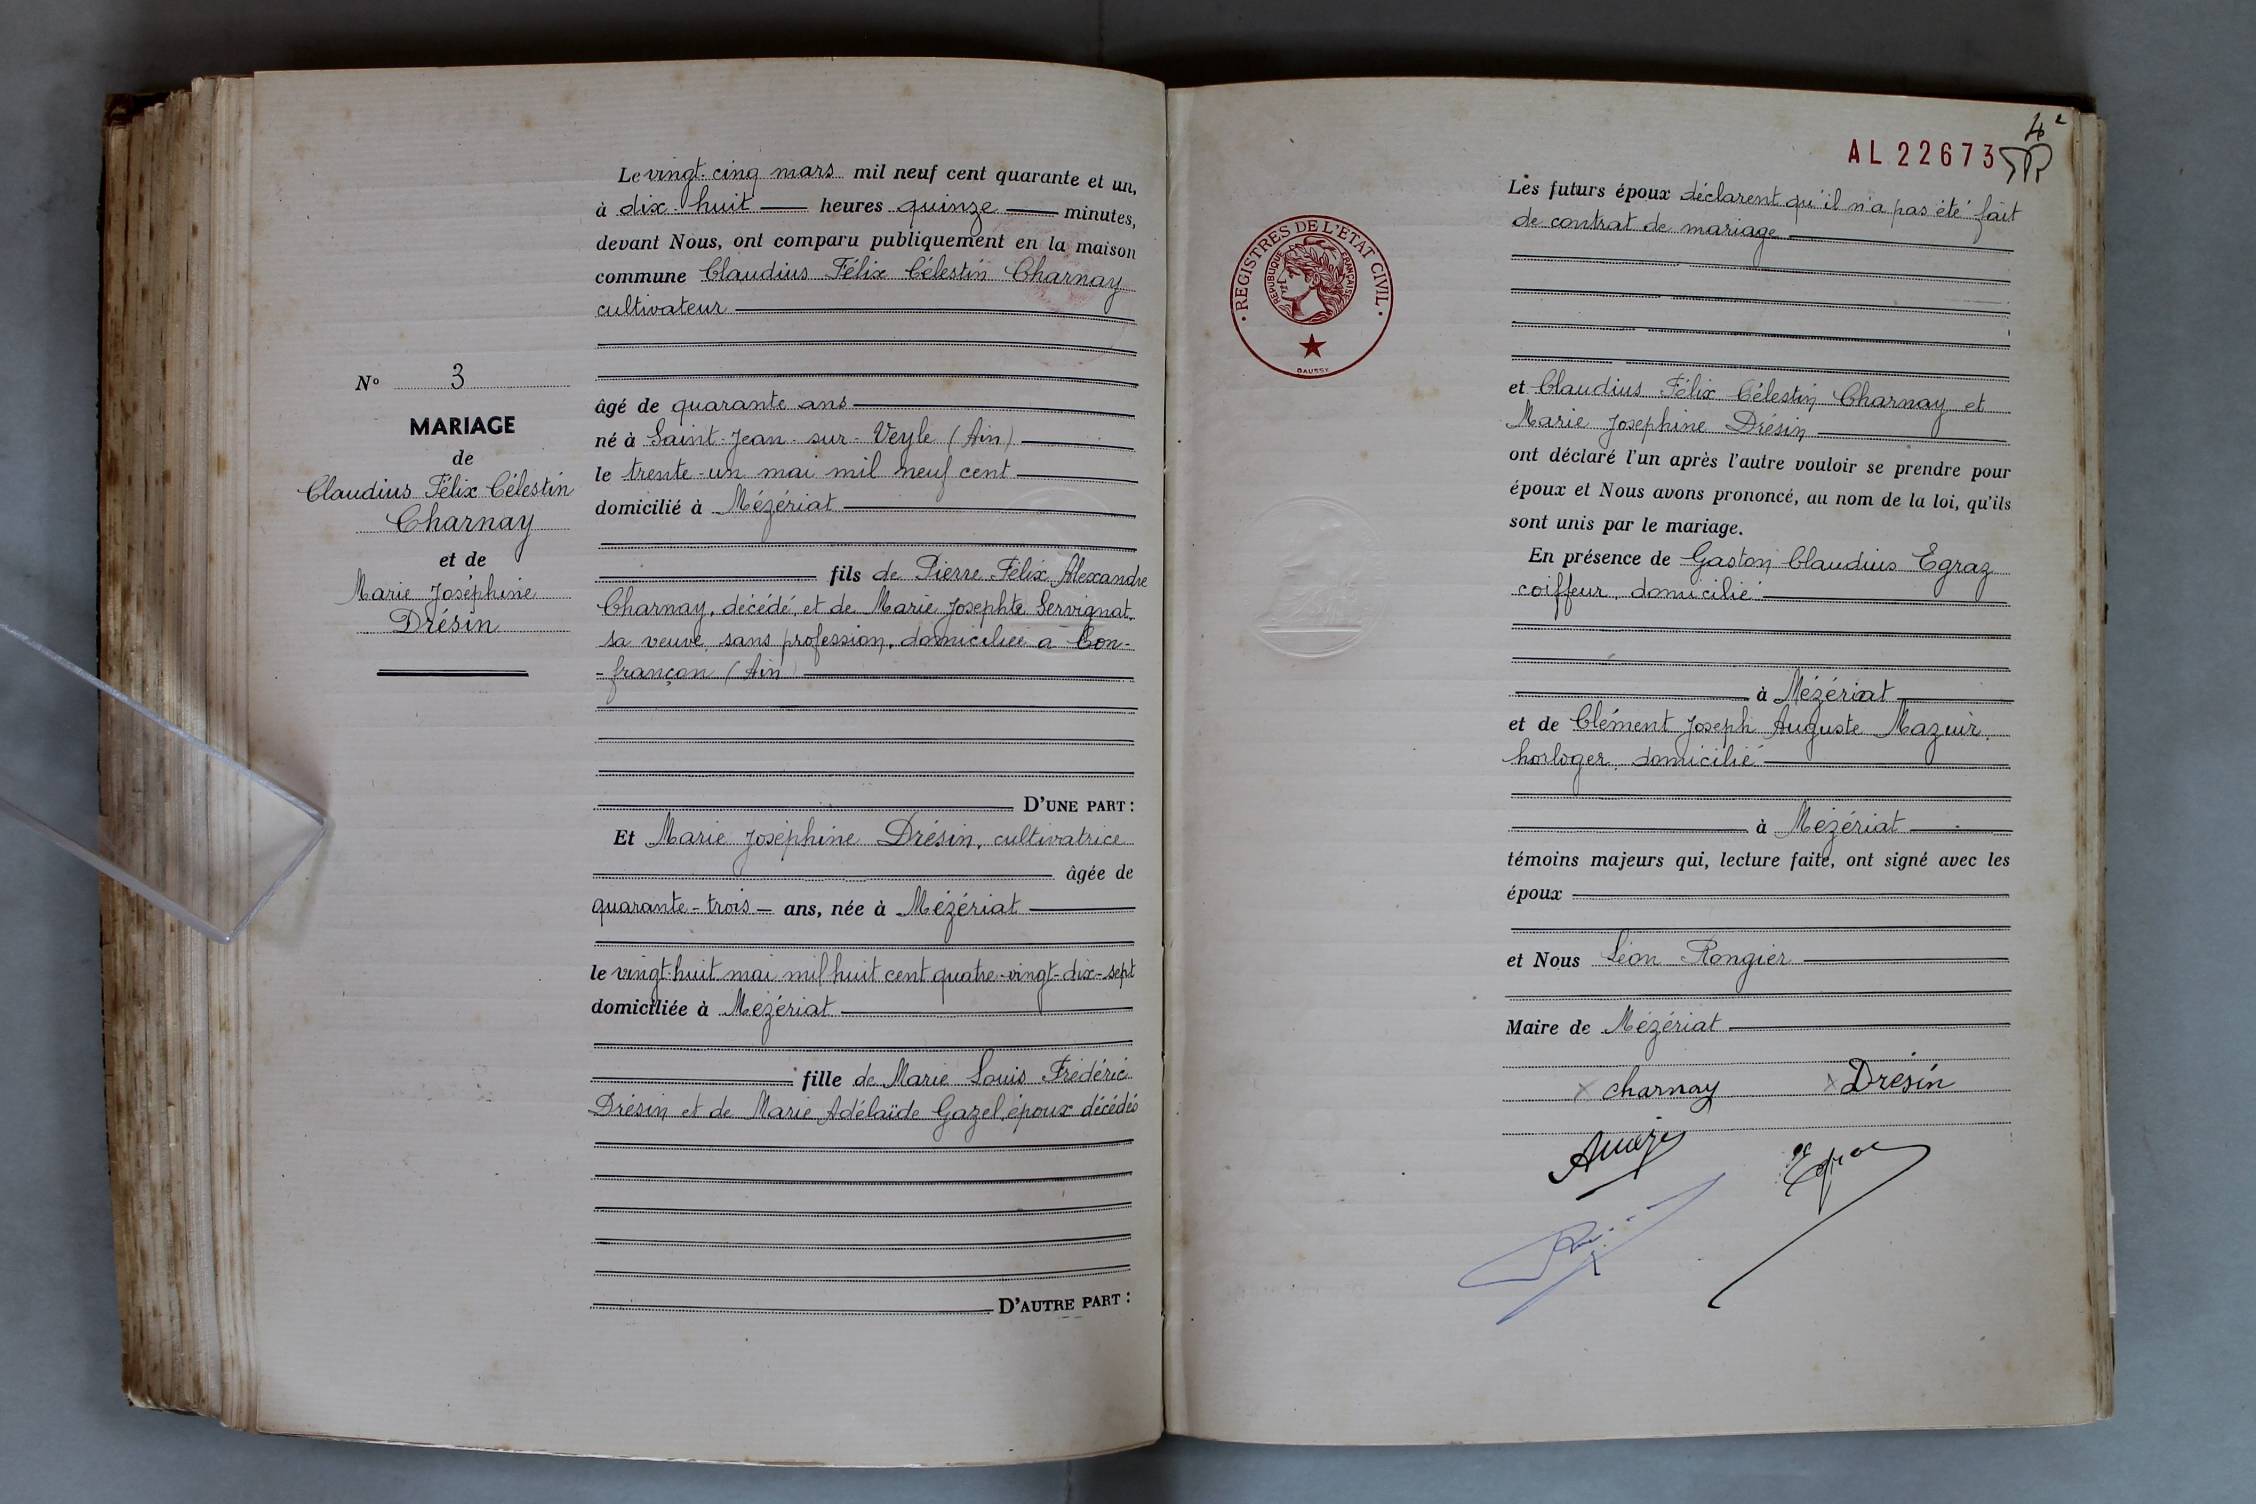 N° 3
MARIAGE
de
Claudius Félix Célestin
Charnay
et de
Marie Joséphine
Drésin
Le vingt-cinq mars mil neuf cent quarante et un,
à dix-huit heures quinze minutes,
devant Nous, ont comparu publiquement en la maison
commune Claudius Félix Célestin Charnay
cultivateur
âgé de quarante ans
né à Saint-Jean-sur-Veyle (Ain)
le trente-un mai mil neuf cent
domicilié à Mézériat
fils de Pierre Félix Alexandre
Charnay, décédé, et de Marie Josephte Servignat,
sa veuve, sans profession, domiciliée à Con-
-françon (Ain)
D'UNE PART :
Et Marie Joséphine Drésin, cultivatrice
âgée de
quarante-trois ans, née à Mézériat
le vingt-huit mai mil huit cent quatre-vingt-dix-sept
domiciliée à Mézériat
fille de Marie Louis Frédéric
Drésin et de Marie Adélaïde Gazel, époux décédés
D'AUTRE PART :
4e
AL 22673
REGISTRES DE L'ETAT CIVIL
REPUBLIQUE FRANÇAISE
DAUSSY
Les futurs époux déclarent qu'il n'a pas été fait
de contrat de mariage
et Claudius Félix Célestin Charnay et
Marie Josephine Drésin
ont déclaré l'un après l'autre vouloir se prendre pour
époux et Nous avons prononcé, au nom de la loi, qu'ils
sont unis par le mariage.
En présence de Gaston Claudius Egraz
coiffeur, domicilié
à Mézériat
et de Clément Joseph Auguste Mazuir,
horloger, domicilié
à Mézériat
témoins majeurs qui, lecture faite, ont signé avec les
époux
et Nous Léon Rongier
Maire de Mézériat
x charnay x Drésin